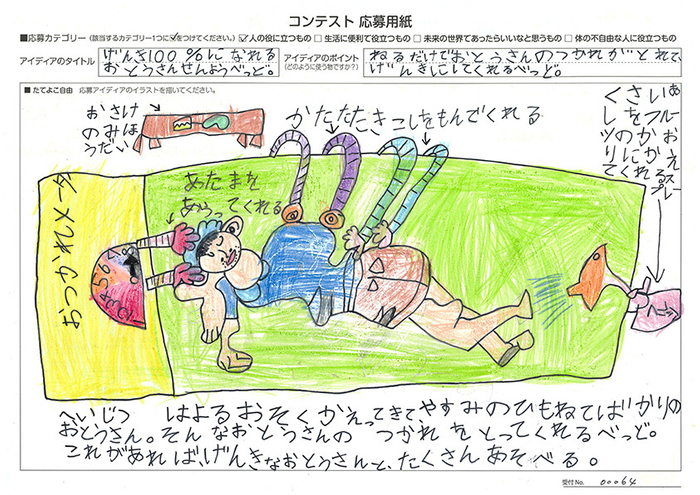 コンテスト 応募用紙
■応募カテゴリー (該当するカテゴリー1つに✓をつけてください。) ☑人の役に立つもの □生活に便利で役立つもの □未来の世界であったらいいなと思うもの □体の不自由な人に役立つもの
アイディアのタイトル
げんき100%になれる
おとうさんせんようべっど。
アイディアのポイント
(どのように使う物ですか?)
ねるだけでおとうさんのつかれがとれて、
げんきにしてくれるべっど。
■たてよこ自由 応募アイディアのイラストを描いてください。
おさけ
のみほ
うだい
かたたたき
こしをもんでくれる
あしの
くさい
をフルーツ
のかおりにかえ
てくれるスプレー
あたまを
あらってくれる
おつかれメータ
へいじつ はよるおそくかえってきてやすみのひもねてばかりの
おとうさん。そんなおとうさんの つかれをとってくれるべっど。
これがあれば、げんきなおとうさんと、たくさんあそべる。
受付No. 00064